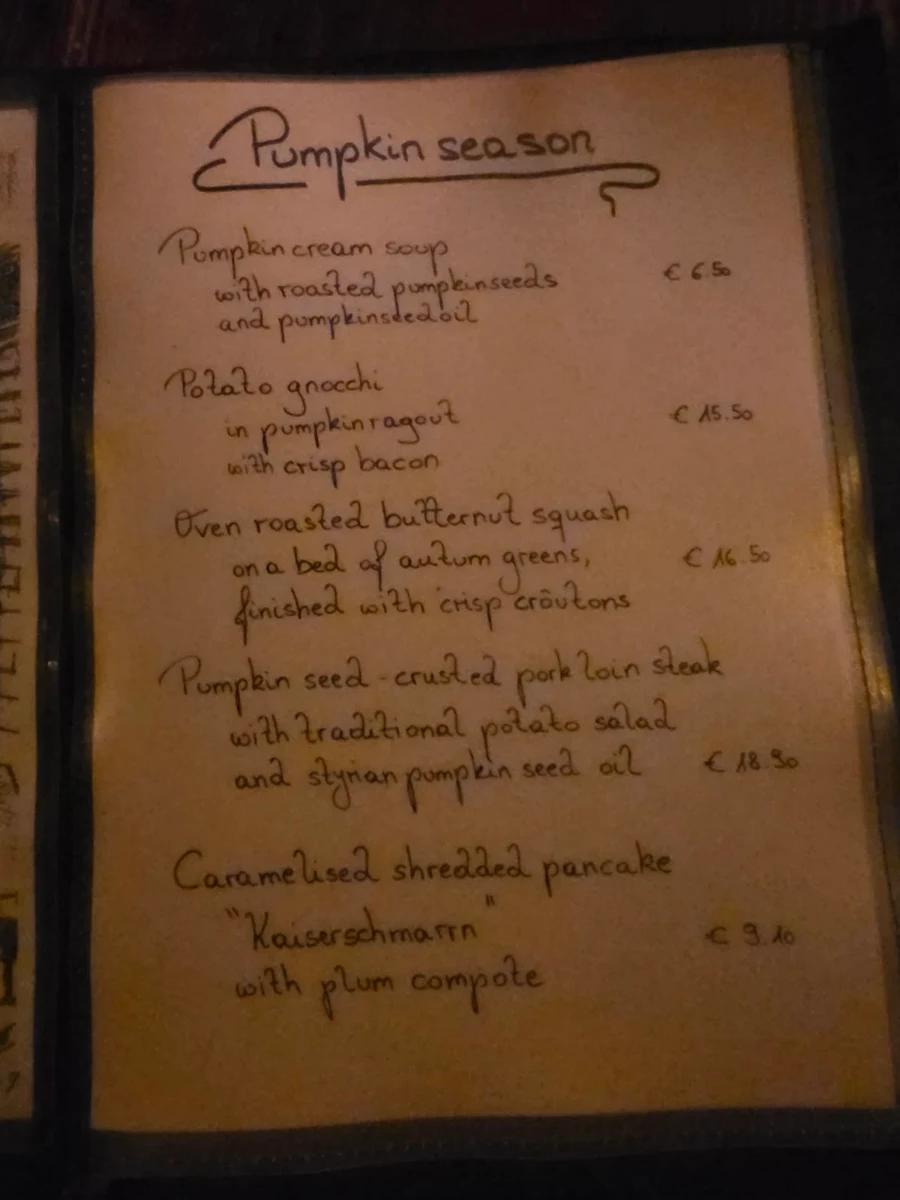 Pumpkin season
Pumpkin cream soup
with roasted pumpkinseeds
€ 6.50
and pumpkinseedoil
Potato gnocchi
in pumpkin ragout
€ 15.50
with crisp bacon
Oven roasted butternut squash
on a bed of autum greens,
€ 16.50
finished with crisp croutons
Pumpkin seed-crusted pork loin steak
with traditional potato salad
and styrian pumpkin seed oil
€ 18.90
Caramelised shredded pancake
"Kaiserschmarrn"
€ 9.10
with plum compote